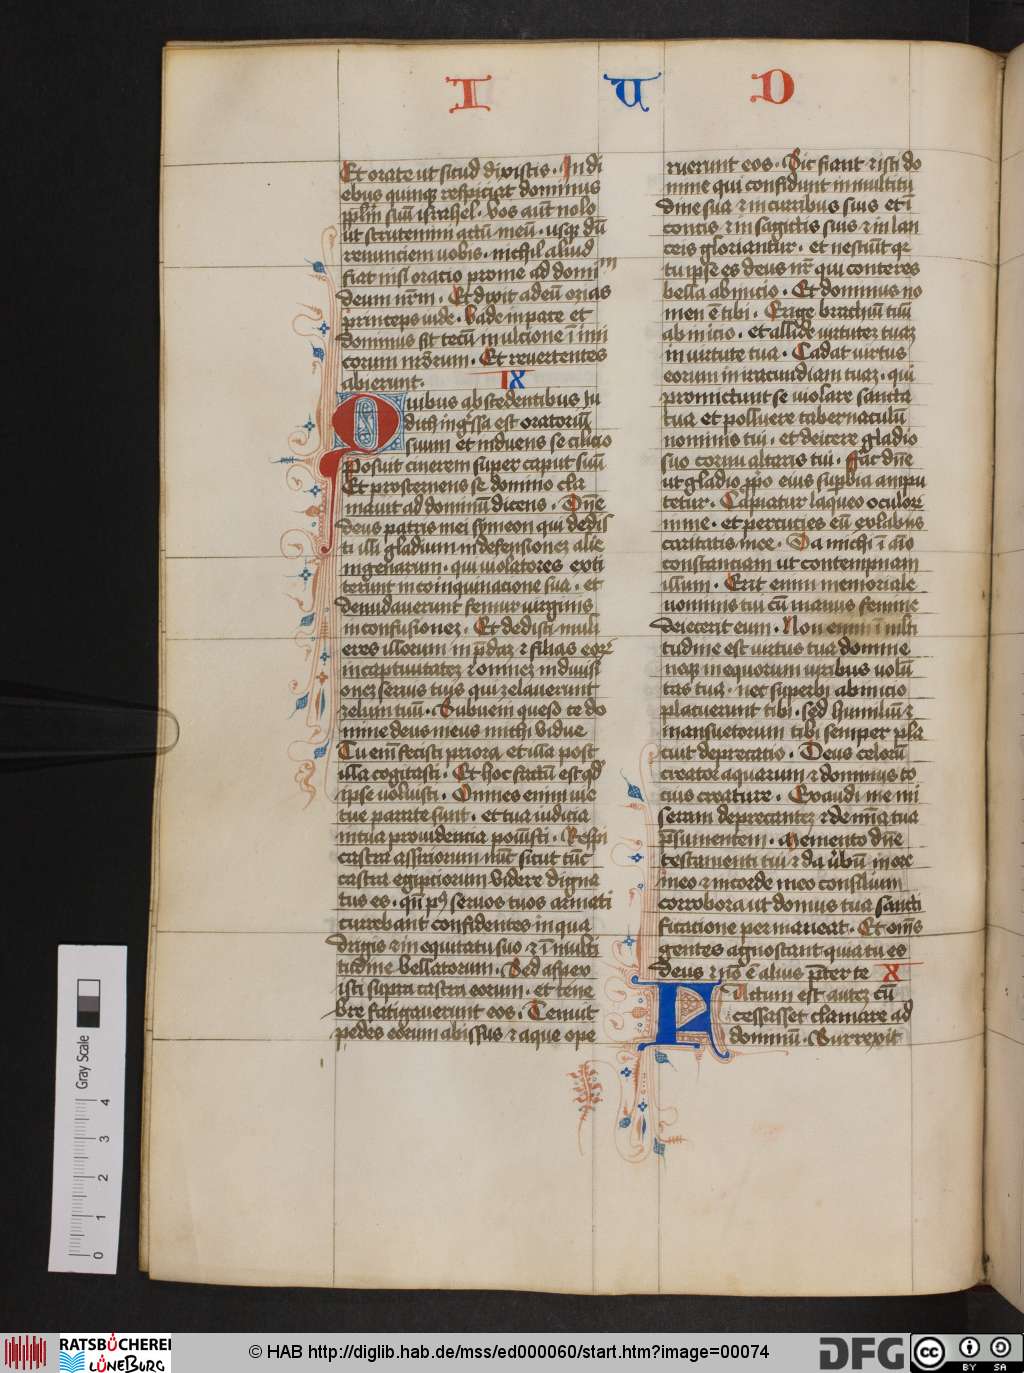 I U D
Et orate ut sicud dixistis . In di
ebus quinqz respiciat dominus
pplm suũ israhel . Vos aũt nolo
ut scrutemini actũ meũ . usqz dũ
renunciem uobis . nichil aliud
fiat nisi oracio pro me ad dominm
deum nrm . Et dixit ad eũ ozias
princeps iude . Vade in pace et
dominus sit tecũ in ulcione ĩ imi
corum nrorum . Et revertentes
abierunt . IX
Quibus abscedentibus Iu
dith ingssa est oratoriũ
suum et induens se cilicio
Posuit cinerem super caput suũ
Et prosternens se domino cla
mavit ad dominũ dicens . Dñe
deus patris mei symeon qui dedis
ti illi gladium in defensionez alie
nigenarum . qui uiolatores exti
terunt in coinquinacione sua . et
denudaverunt femur virginis
in confusionez . Et dedisti muli
eres illorum in pdaz et filias eorz
in captivitatez et omnez in divisi
onez servis tuis qui zelaverunt
zelum tuũ . Subueni queso te do
mine deus meus michi vidue
Tu em fecisti priora et illa post
illa cogitasti . Et hoc factũ est qd
ipse voluisti . Omnes enim vie
tue parate sunt . et tua iudicia
in tua providencia posuisti . Respi
castra assiriorum nũc sicut tũc
castra egipciorum videre digna
tus es . qñ p9 servos tuos armati
currebant confidentes in qua
drigis et in equitatu suo et ĩ multi
tudine bellatorum . Sed aspex
isti supra castra eorum . et tene
bre fatigaverunt eos . Tenuit
pedes eorum abissus et aque ope
ruerunt eos . Sic fiant et isti do
mine qui confidunt in multitu
dine sua et in curribus suis et ĩ
contis et in sagittis suis et in lan
ceis gloriantur . et nesciũt qr
tu ipse es deus nr qui conteres
bella ab inicio . Et dominus no
men ẽ tibi . Erige brachiũ tuũ
ab inicio . et allide virtutez tuaz
in virtute tua . Cadat virtus
eorum in iracundiam tuaz . qui
promittunt se violare sancta
tua et polluere tabernaculũ
nominis tui . et deicere gladio
suo cornu altaris tui . Fac dñe
ut gladio pprio eius supbia ampu
tetur . Capiatur laqueo oculorz
in me . et percucies eũ ex labiis
caritatis mee . Da michi ĩ aĩo
constanciam ut contempnam
illum . Erit enim memoriale
nominis tui cũ manus femine
deiecerit eum . Non enim ĩ mlti
tudine est virtus tua domine
neqz in equorum viribus volũ
tas tua . nec superbi ab inicio
placuerunt tibi . sed humiliũ et
mansuetorum tibi semper pla
cuit deprecatio . Deus celorũ
creator aquarum et dominus to
cius creature . Exaudi me mi
seram deprecantez et de mĩa tua
psumentem . Memento dñe
testamenti tui et da ubũ in ore
meo et in corde meo consilium
corrobora ut domus tua sancti
ficatione permaneat . Et oms
gentes agnoscant quia tu es
deus et nõ ẽ alius pter te X
Factum est autez cũ
cessasset clamare ad
dominũ . Surrexit
Gray Scale
0 1 2 3 4
RATSBÜCHEREI
LÜNEBURG
© HAB http://diglib.hab.de/mss/ed000060/start.htm?image=00074
DFG
cc BY SA